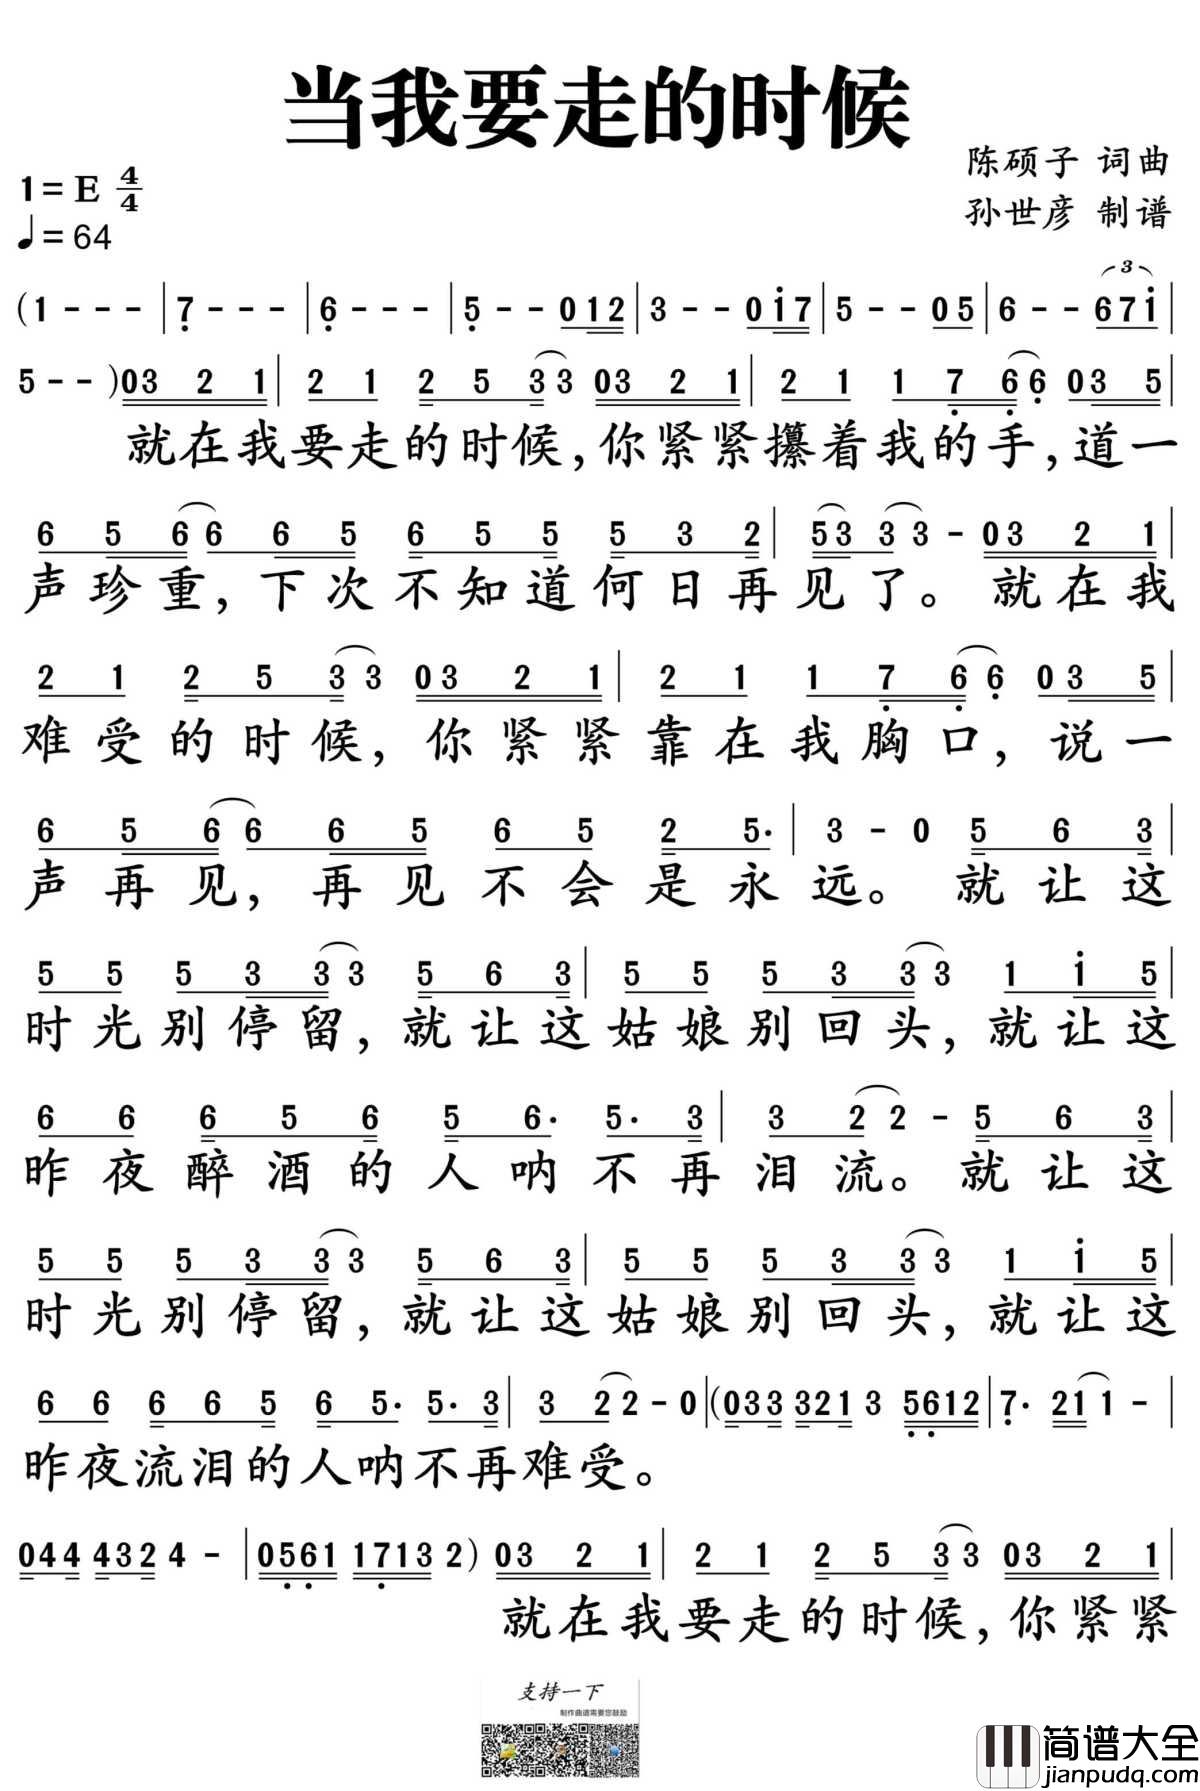 当我要走的时候
陈硕子 词曲
1=E 4/4
孙世彦 制谱
♩=64
(1 - - - | 7 - - - | 6 - - - | 5 - - 0 1 2 | 3 - - 0 i 7 | 5 - - 0 5 | 6 - - 6 7 i |
5 - - ) 0 3 2 1 | 2 1 2 5 3 3 0 3 2 1 | 2 1 1 7 6 6 0 3 5 |
就在我要走的时候,你紧紧攥着我的手,道一
6 5 6 6 6 5 6 5 5 5 3 2 | 5 3 3 3 - 0 3 2 1 |
声珍重,下次不知道何日再见了。就在我
2 1 2 5 3 3 0 3 2 1 | 2 1 1 7 6 6 0 3 5 |
难受的时候,你紧紧靠在我胸口,说一
6 5 6 6 6 5 6 5 2 5· | 3 - 0 5 6 3 |
声再见,再见不会是永远。就让这
5 5 5 3 3 3 5 6 3 | 5 5 5 3 3 3 1 i 5 |
时光别停留,就让这姑娘别回头,就让这
6 6 6 5 6 5 6· 5· 3 | 3 2 2 - 5 6 3 |
昨夜醉酒的人呐不再泪流。就让这
5 5 5 3 3 3 5 6 3 | 5 5 5 3 3 3 1 i 5 |
时光别停留,就让这姑娘别回头,就让这
6 6 6 6 5 6 5· 5· 3 | 3 2 2 - 0 | (0 3 3 3 2 1 3 5 6 1 2 | 7· 2 1 1 - |
昨夜流泪的人呐不再难受。
0 4 4 4 3 2 4 - | 0 5 6 1 1 7 1 3 2 ) 0 3 2 1 | 2 1 2 5 3 3 0 3 2 1 |
就在我要走的时候,你紧紧
支持一下
制作曲谱需要您鼓励
简谱大全
jianpudq.com